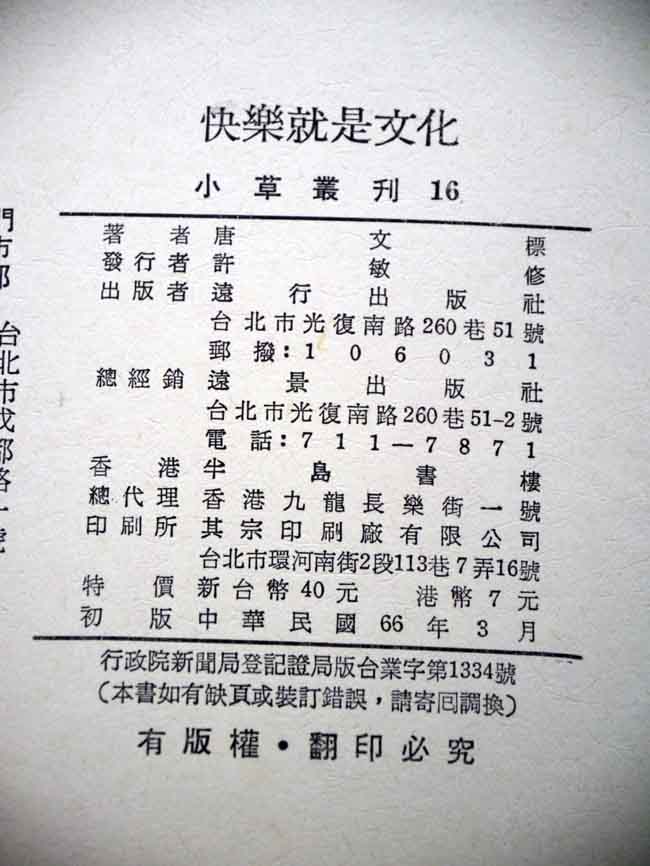 快樂就是文化
小草叢刊 16
著者 唐文標
發行者 許敏修
出版者 遠行出版社
台北市光復南路260巷51號
郵撥：106031
總經銷 遠景出版社
台北市光復南路260巷51-2號
電話：711—7871
香港 半島書樓
總代理 香港九龍長樂街一號
印刷所 其宗印刷廠有限公司
台北市環河南街2段113巷7弄16號
特價 新台幣40元 港幣7元
初版 中華民國66年3月
行政院新聞局登記證局版台業字第1334號
（本書如有缺頁或裝訂錯誤，請寄回調換）
有版權・翻印必究
門市部 台北市